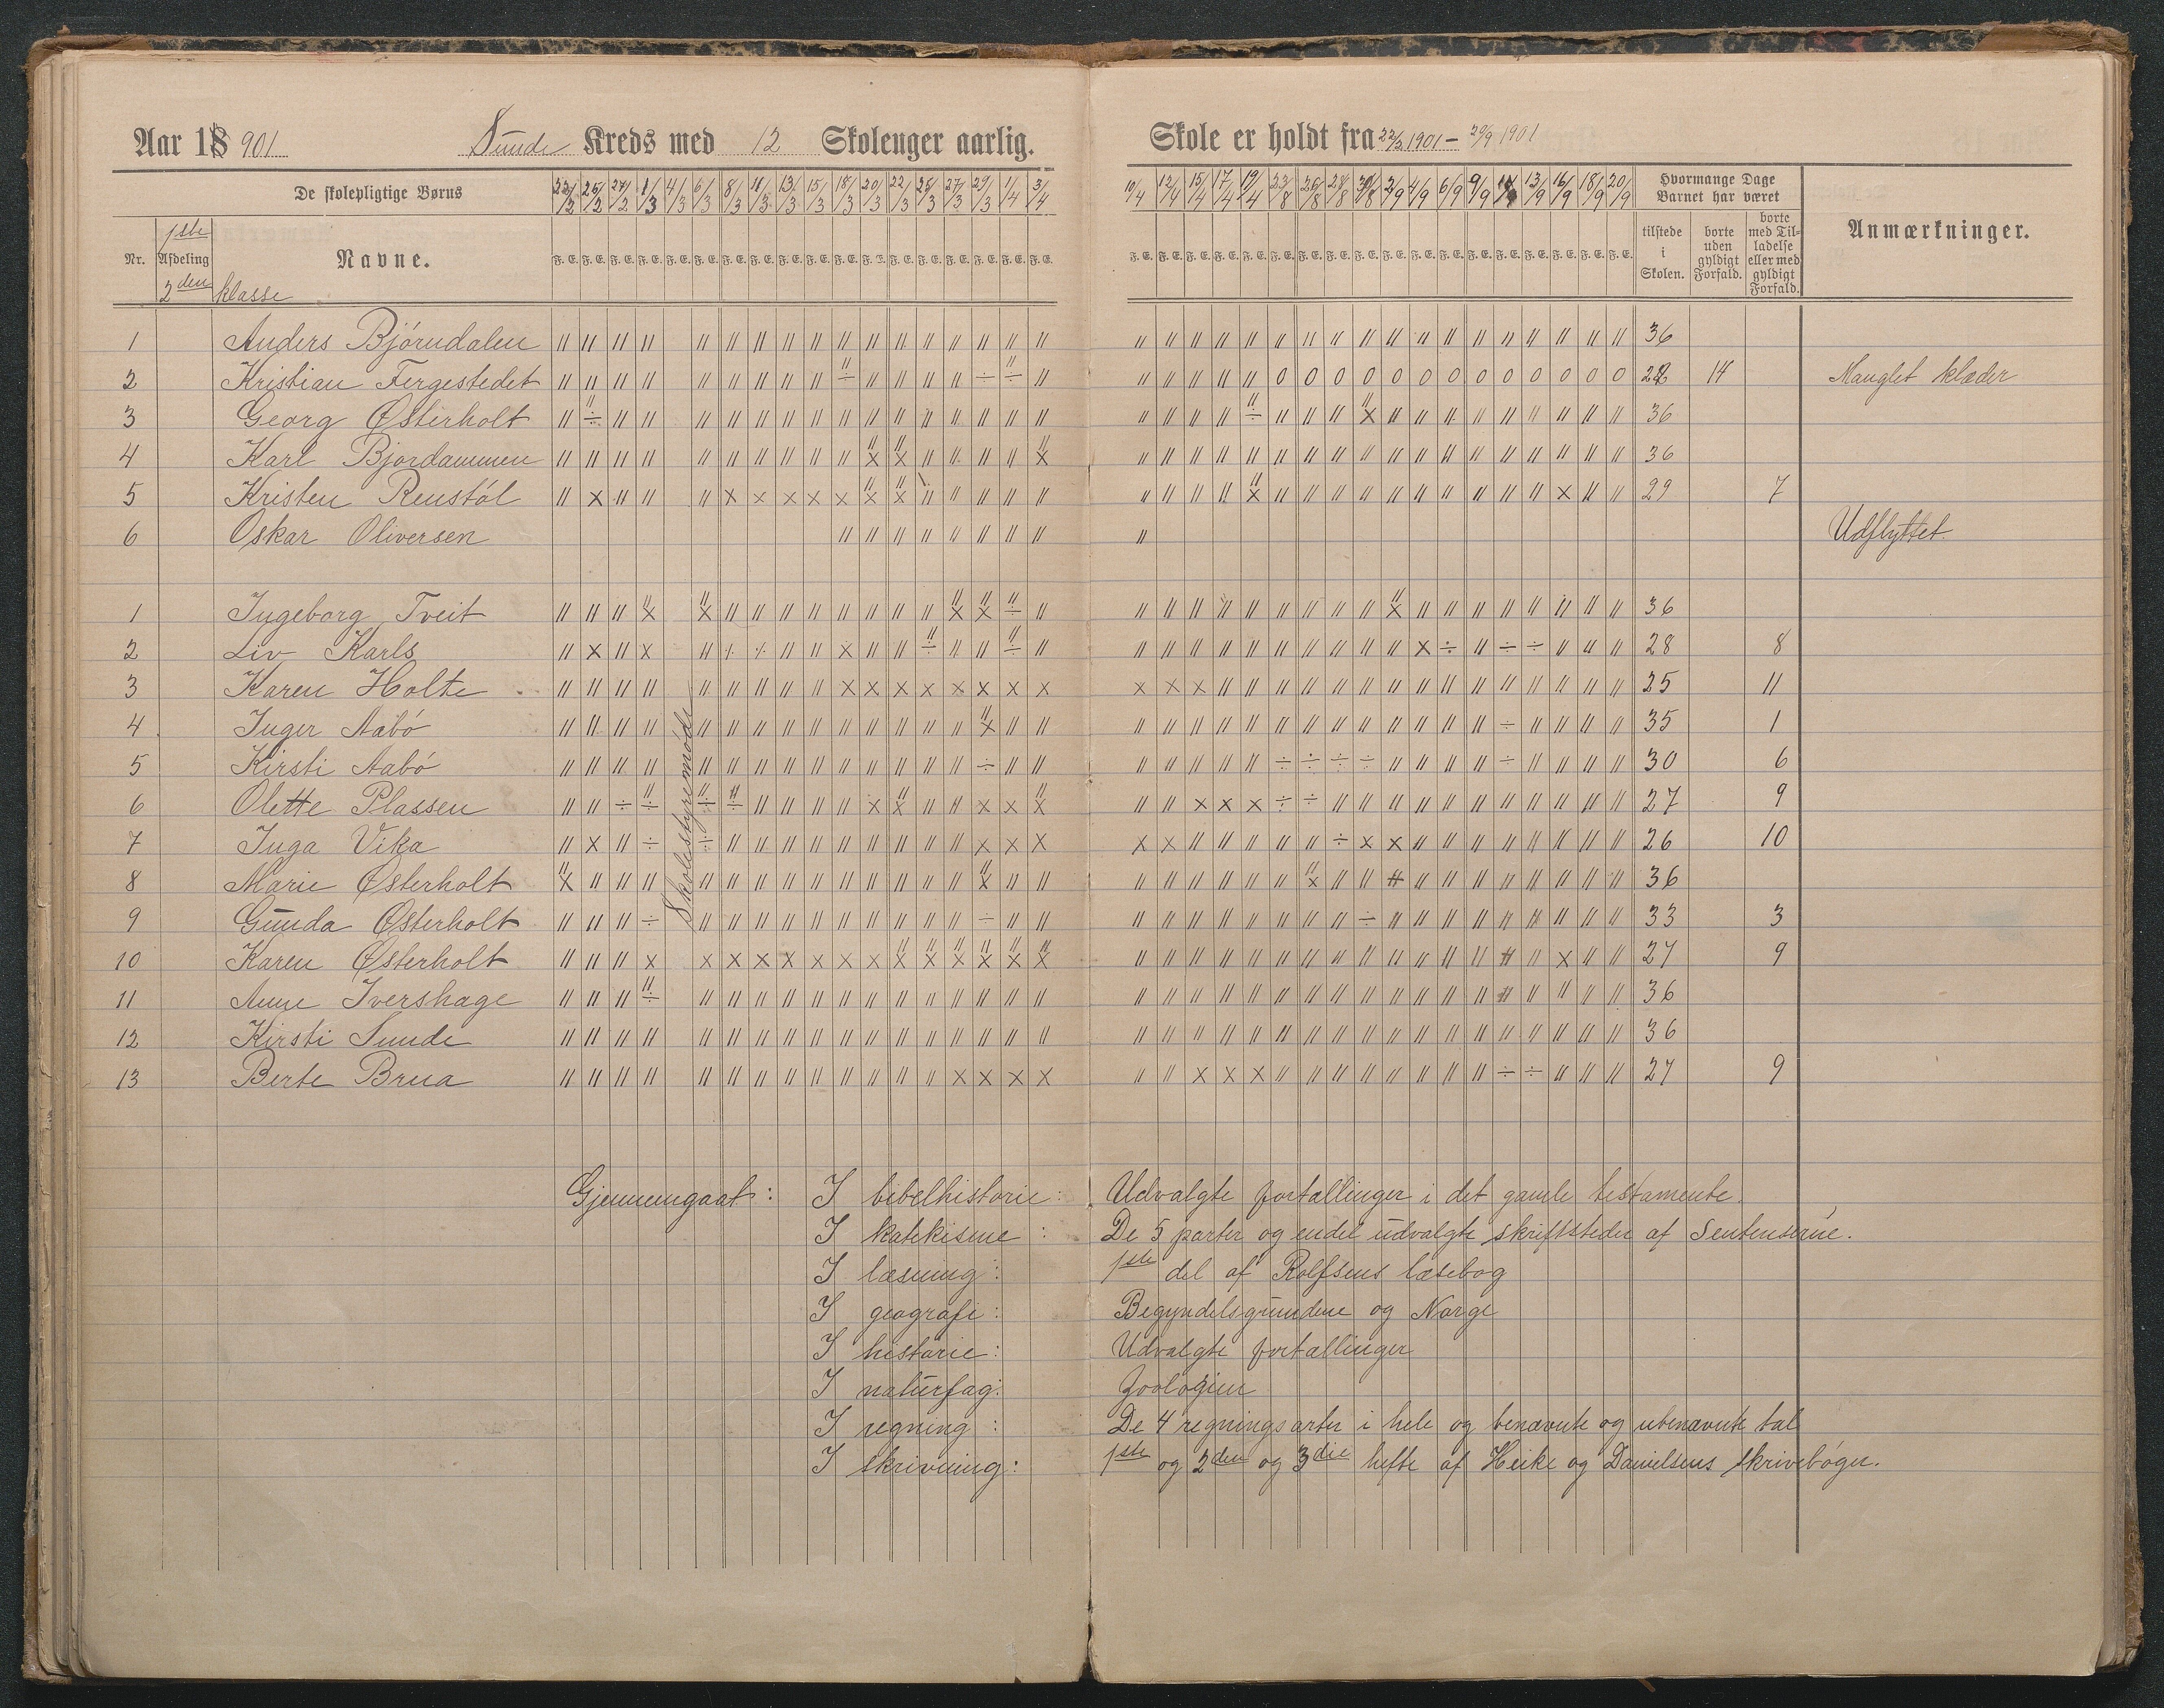 Aar 18 901 Sunde Kreds med 12 Skoleuger aarlig. Skole er holdt fra 22/2 1901 - 20/9 1901
De skolepligtige Børns 22/2 25/2 27/2 1/3 4/3 6/3 8/3 11/3 13/3 15/3 18/3 20/3 22/3 25/3 27/3 29/3 1/4 3/4 10/4 12/4 15/4 17/4 19/4 23/8 26/8 28/8 30/8 2/9 4/9 6/9 9/9 13/9 16/9 18/9 20/9 Hvormange Dage Barnet har været
Nr. 1ste Afdeling 2den klasse Navne. F. E. tilstede i Skolen. borte uden gyldigt Forfald. borte med Tilladelse eller med gyldigt Forfald. Anmærkninger.
1 Anders Bjórndalen 36
2 Kristian Fergestedet 22 14 Manglet klæder
3 Georg Østerholt 36
4 Karl Bjordammen 36
5 Kristen Renstól 29 7
6 Oskar Oliversen Udflyttet
1 Ingeborg Tveit 36
2 Liv Karls 28 8
3 Karen Holte 25 11
4 Inger Aabó 35 1
5 Kirsti Aabó 30 6
6 Olette Plassen 27 9
7 Inga Vika 26 10
8 Marie Østerholt 36
9 Gunda Østerholt 33 3
10 Karen Østerholt 27 9
11 Anne Ivershage 36
12 Kirsti Sunde 36
13 Berte Brua 27 9
Skolestyremóde
Gjennemgaat: I bibelhistorie: Udvalgte fortællinger i det gamle testamente.
I katekisme : De 5 parter og endel udvalgte skriftsteder af Sentenserne.
I læsning: 1ste del af Rolfsens læsebog
I geografi: Begyndelsgrundene og Norge
I historie: Udvalgte fortællinger
I naturfag: Zoologien
I regning : De 4 regningsarter i hele og benævnte og ubenævnte tal
I skrivning: 1ste og 2den og 3die hefte af Heike og Danielsens skrivebóger.